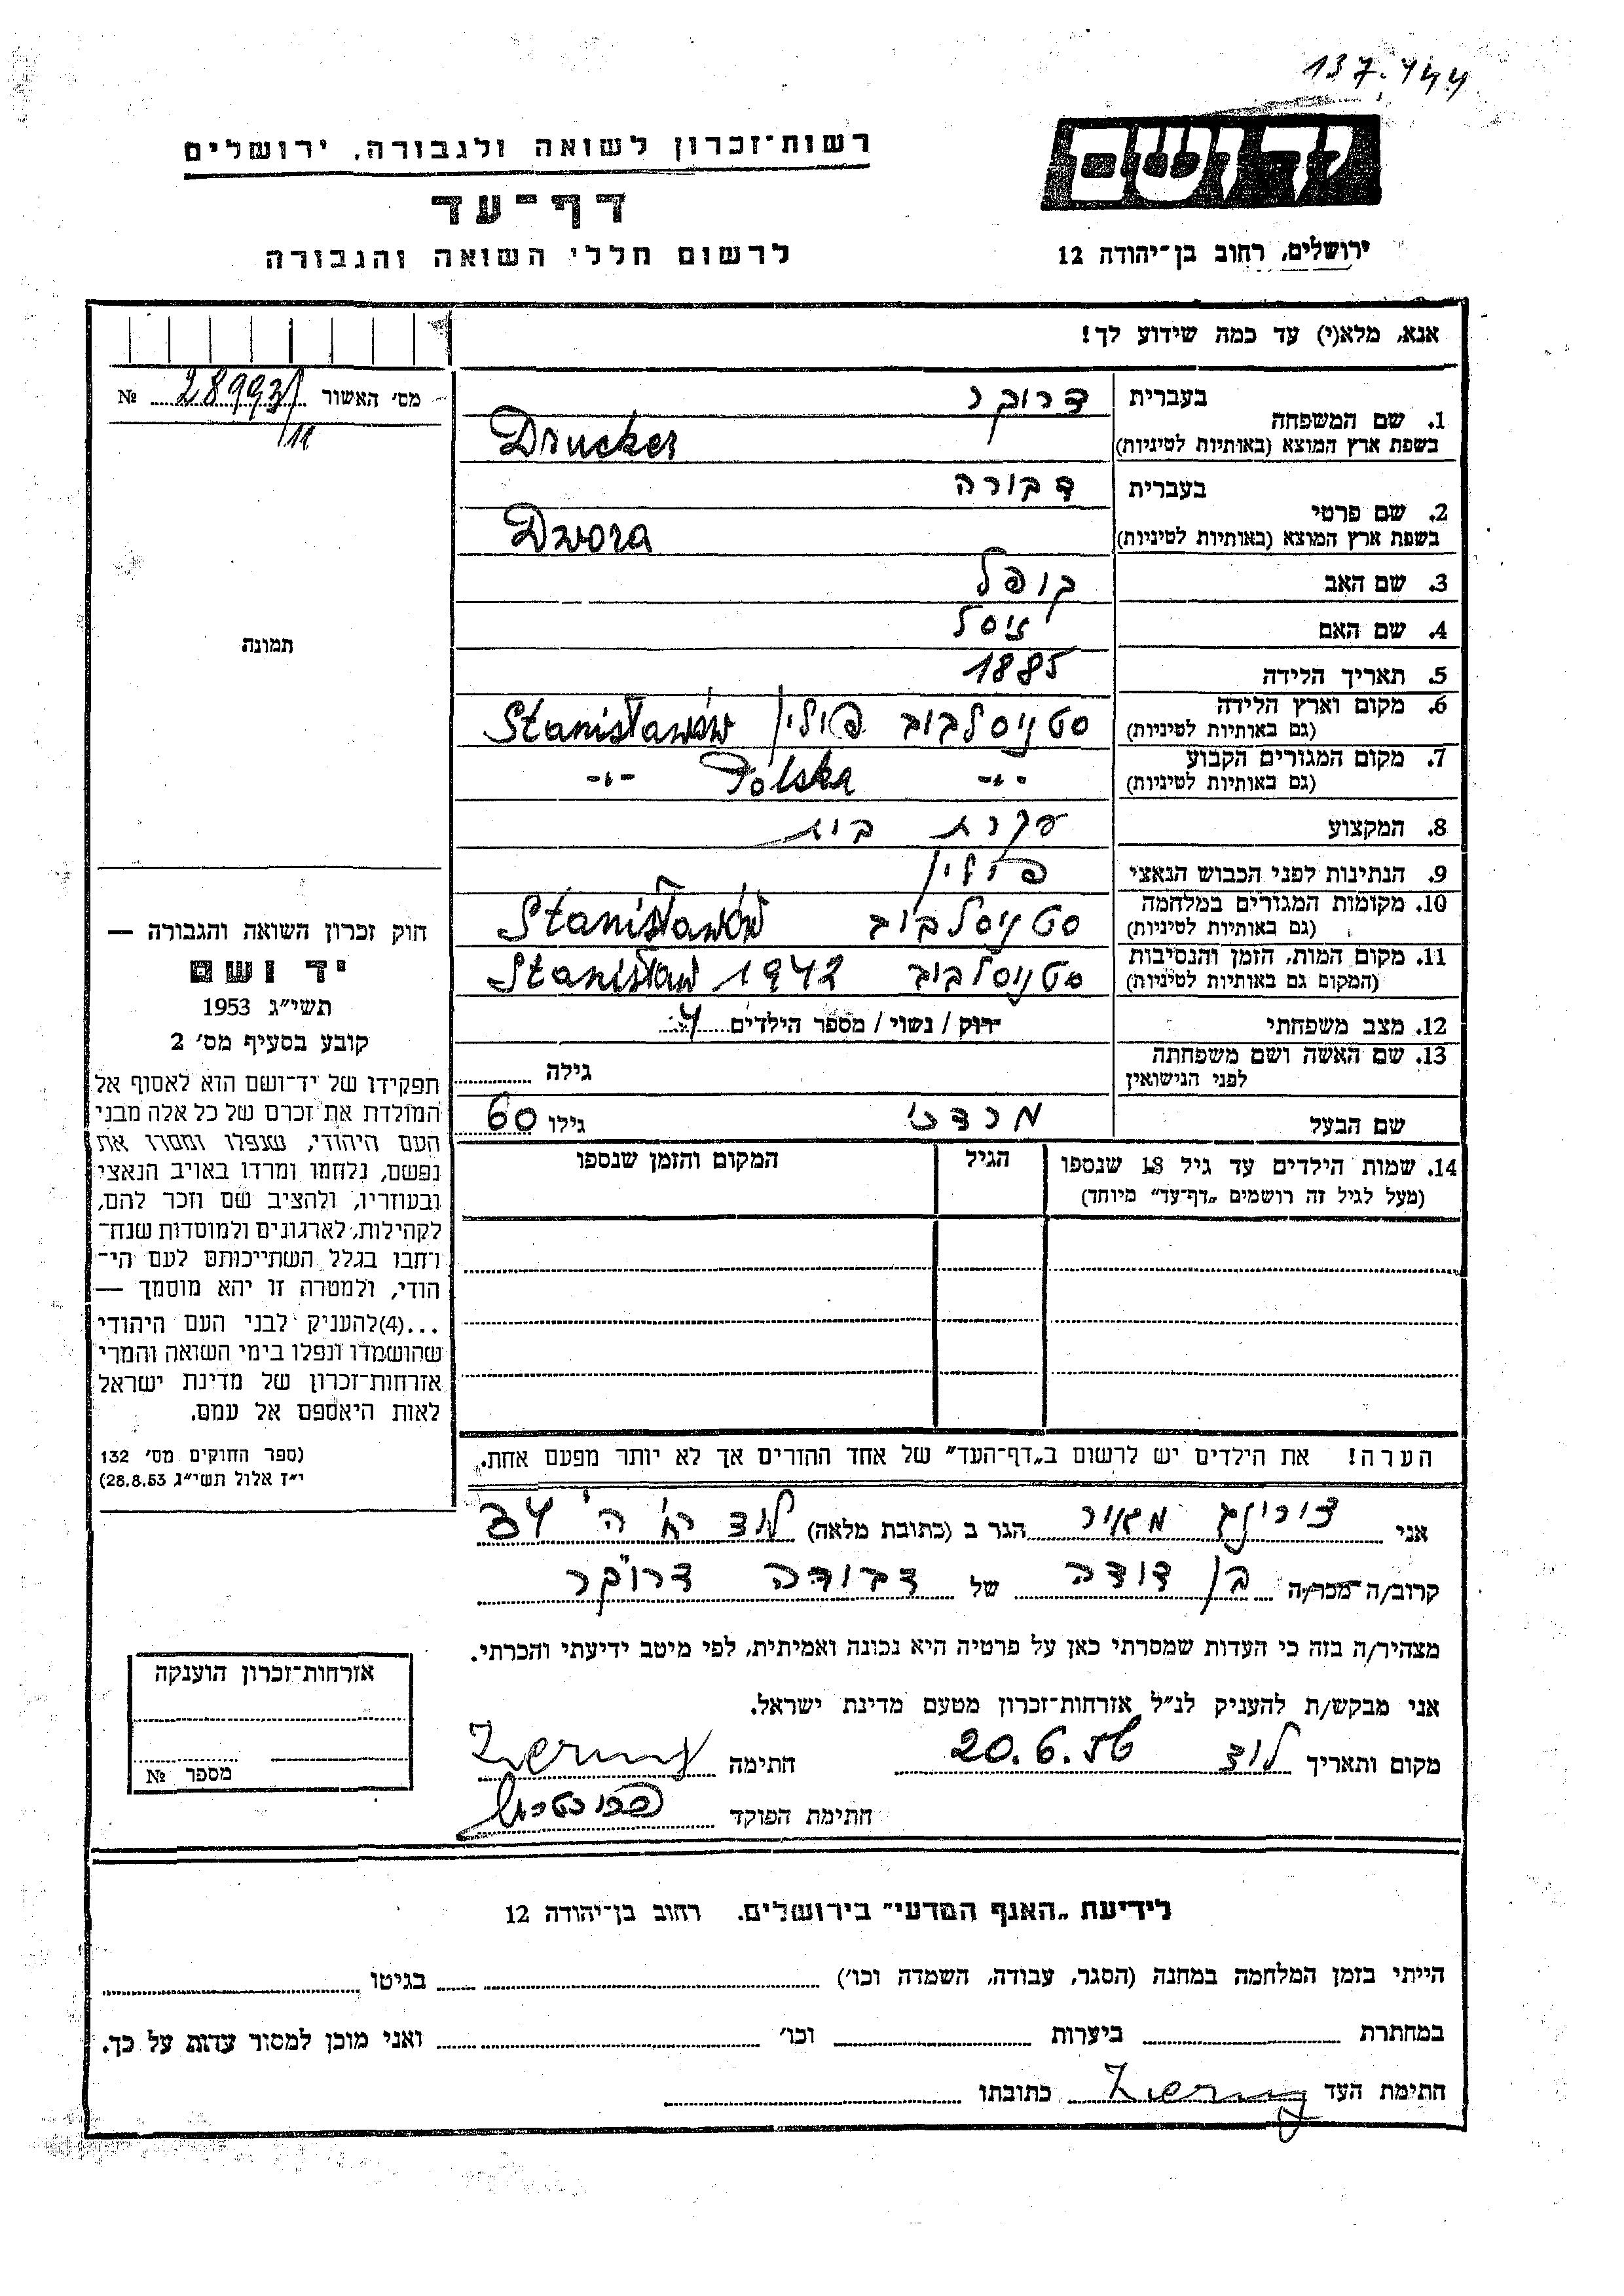 137.444
רשות־זכרון לשואה ולגבורה, ירושלים
יד ושם
דף־עד
לרשום חללי השואה והגבורה
ירושלים, רחוב בן־יהודה 12
אנא, מלא(י) עד כמה שידוע לך!
מס׳ האשור 28993/ №
11
1. שם המשפחה
בעברית דרוקר
בשפת ארץ המוצא (באותיות לטיניות) Drucker
2. שם פרטי
בעברית דבורה
בשפת ארץ המוצא (באותיות לטיניות) Dwora
3. שם האב קופל
4. שם האם זיסל
5. תאריך הלידה 1885
6. מקום וארץ הלידה סטניסלבוב פולין Stanisławów
(גם באותיות לטיניות)
7. מקום המגורים הקבוע -"- Polska -"-
(גם באותיות לטיניות)
8. המקצוע עקרת בית
9. הנתינות לפני הכבוש הנאצי פולין
10. מקומות המגורים במלחמה סטניסלבוב Stanisławów
(גם באותיות לטיניות)
11. מקום המות, הזמן והנסיבות סטניסלבוב Stanisław 1942
(המקום גם באותיות לטיניות)
12. מצב משפחתי רוק / נשוי / מספר הילדים 4
13. שם האשה ושם משפחתה גילה
לפני הנישואין
שם הבעל מרדכי גילו 60
14. שמות הילדים עד גיל 18 שנספו הגיל המקום והזמן שנספו
(מעל לגיל זה רושמים „דף־עד״ מיוחד)
הערה! את הילדים יש לרשום ב„דף־העד״ של אחד ההורים אך לא יותר מפעם אחת.
תמונה
חוק זכרון השואה והגבורה —
יד ושם
תשי״ג 1953
קובע בסעיף מס׳ 2
תפקידו של יד־ושם הוא לאסוף אל
המולדת את זכרם של כל אלה מבני
העם היהודי, שנפלו ומסרו את
נפשם, נלחמו ומרדו באויב הנאצי
ובעוזריו, ולהציב שם וזכר להם,
לקהילות, לארגונים ולמוסדות שנח־
רחבו בגלל השתייכותם לעם הי־
הודי, ולמטרה זו יהא מוסמך —
...(4)להעניק לבני העם היהודי
שהושמדו ונפלו בימי השואה והמרי
אזרחות־זכרון של מדינת ישראל
לאות היאספם אל עמם.
(ספר החוקים מס׳ 132
י״ז אלול תשי״ג 28.8.53)
אני צירינג מאיר הגר ב (כתובת מלאה) לוד
קרוב/ה מכר/ה בן דודה של דבורה דרוקר
מצהיר/ה בזה כי העדות שמסרתי כאן על פרטיה היא נכונה ואמיתית, לפי מיטב ידיעתי והכרתי.
אני מבקש/ת להעניק לנ״ל אזרחות־זכרון מטעם מדינת ישראל.
מקום ותאריך לוד 20.6.56 חתימה
חתימת הפוקד
אזרחות־זכרון הוענקה
מספר №
לידיעת „האגף המדעי״ בירושלים. רחוב בן־יהודה 12
הייתי בזמן המלחמה במחנה (הסגר, עבודה, השמדה וכו׳) בגיטו
במחתרת ביערות וכו׳ ואני מוכן למסור עדות על כך.
חתימת העד כתובתו